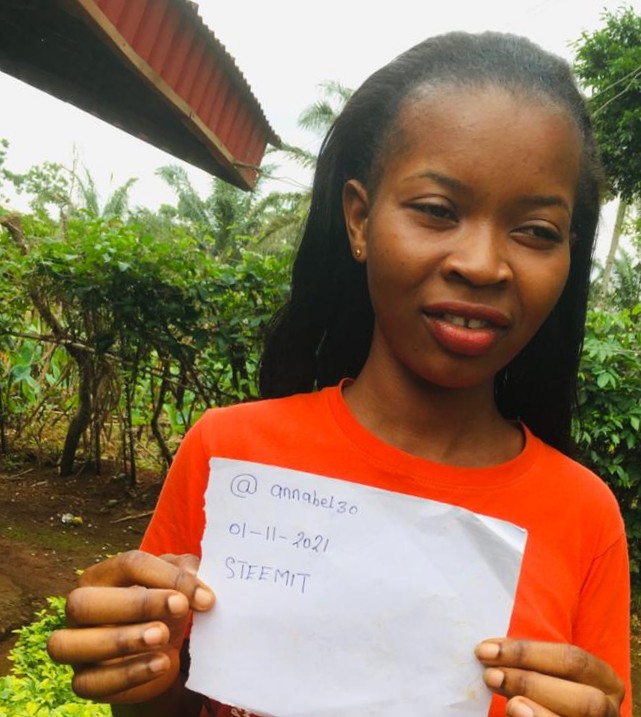 @ annabel30
01-11-2021
STEEMIT